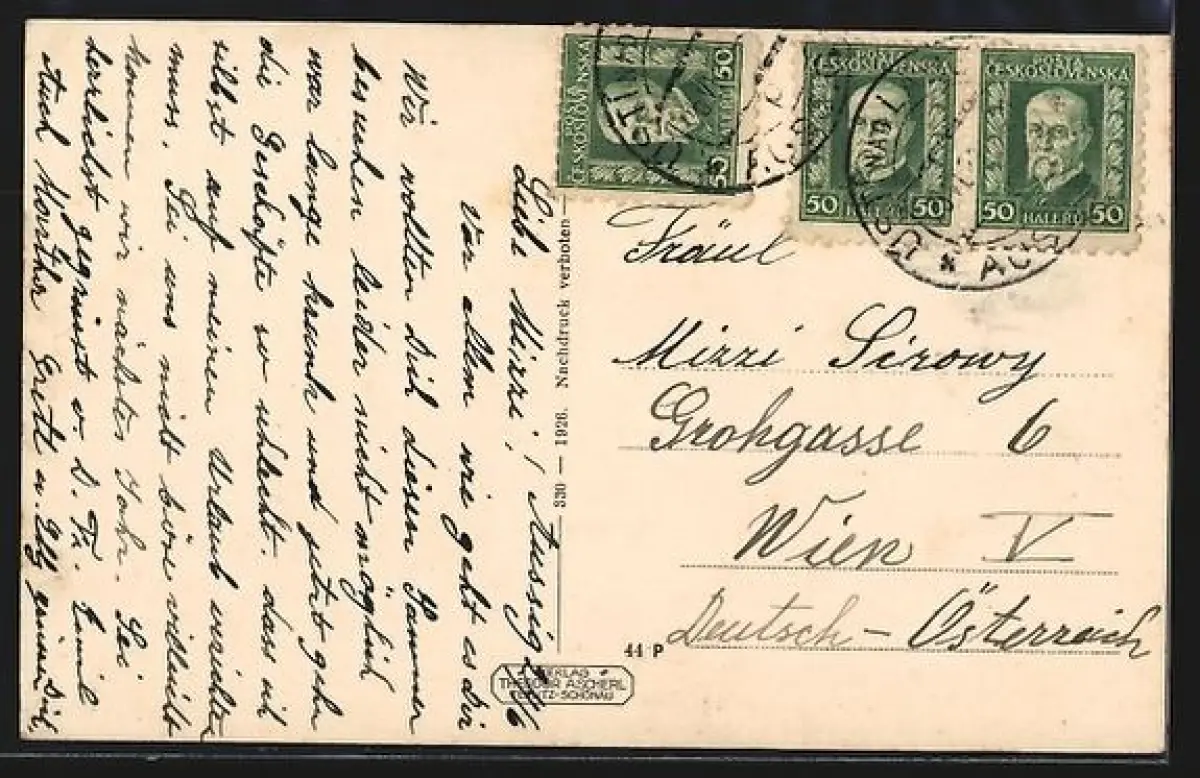 Liebe Mizzi! Aussig
Vor allem wie geht es Dir
Wir wollten Dich diesen Sommer
besuchen leider nicht möglich
war lange krank und jetzt gehn
die Geschäfte so schlecht. dass ich
selbst auf meinen Urlaub verzichten
muss. Sei uns nicht böse vielleicht
kommen wir nächstes Jahr. Sei
herzlichst gegrüsst v. D. Fr. Emil
Auch Marther Gretl u. Elly grüssen Dich.
330 — 1926. Nachdruck verboten
POSTA
ČESKOSLOVENSKÁ
50 HALÉŘŮ 50
POSTA
ČESKOSLOVENSKÁ
50 HALÉŘŮ 50
POSTA
ČESKOSLOVENSKÁ
50 HALÉŘŮ 50
ÚSTÍ NAD L
Fräul
Mizzi Sirowy
Grohgasse 6
Wien V
Deutsch-Österreich
44 P
VERLAG
THEODOR ASCHERL
TEPLITZ-SCHÖNAU